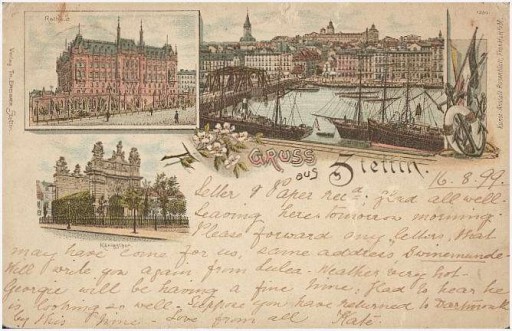 Rathaus
GRUSS
aus
Stettin.
Königsthor.
16.8.99.
Letter & Paper recd: Glad all well.
Leaving here tomorrow morning.
Please forward any letters, that
may have come for us, same address Swinemunde.
Will write you again from Lulea. Weather very hot.
Georgie will be having a fine time. Glad to hear he
is looking so well. Suppose you have returned to Dartmouth
by this time. Love from all Kate.